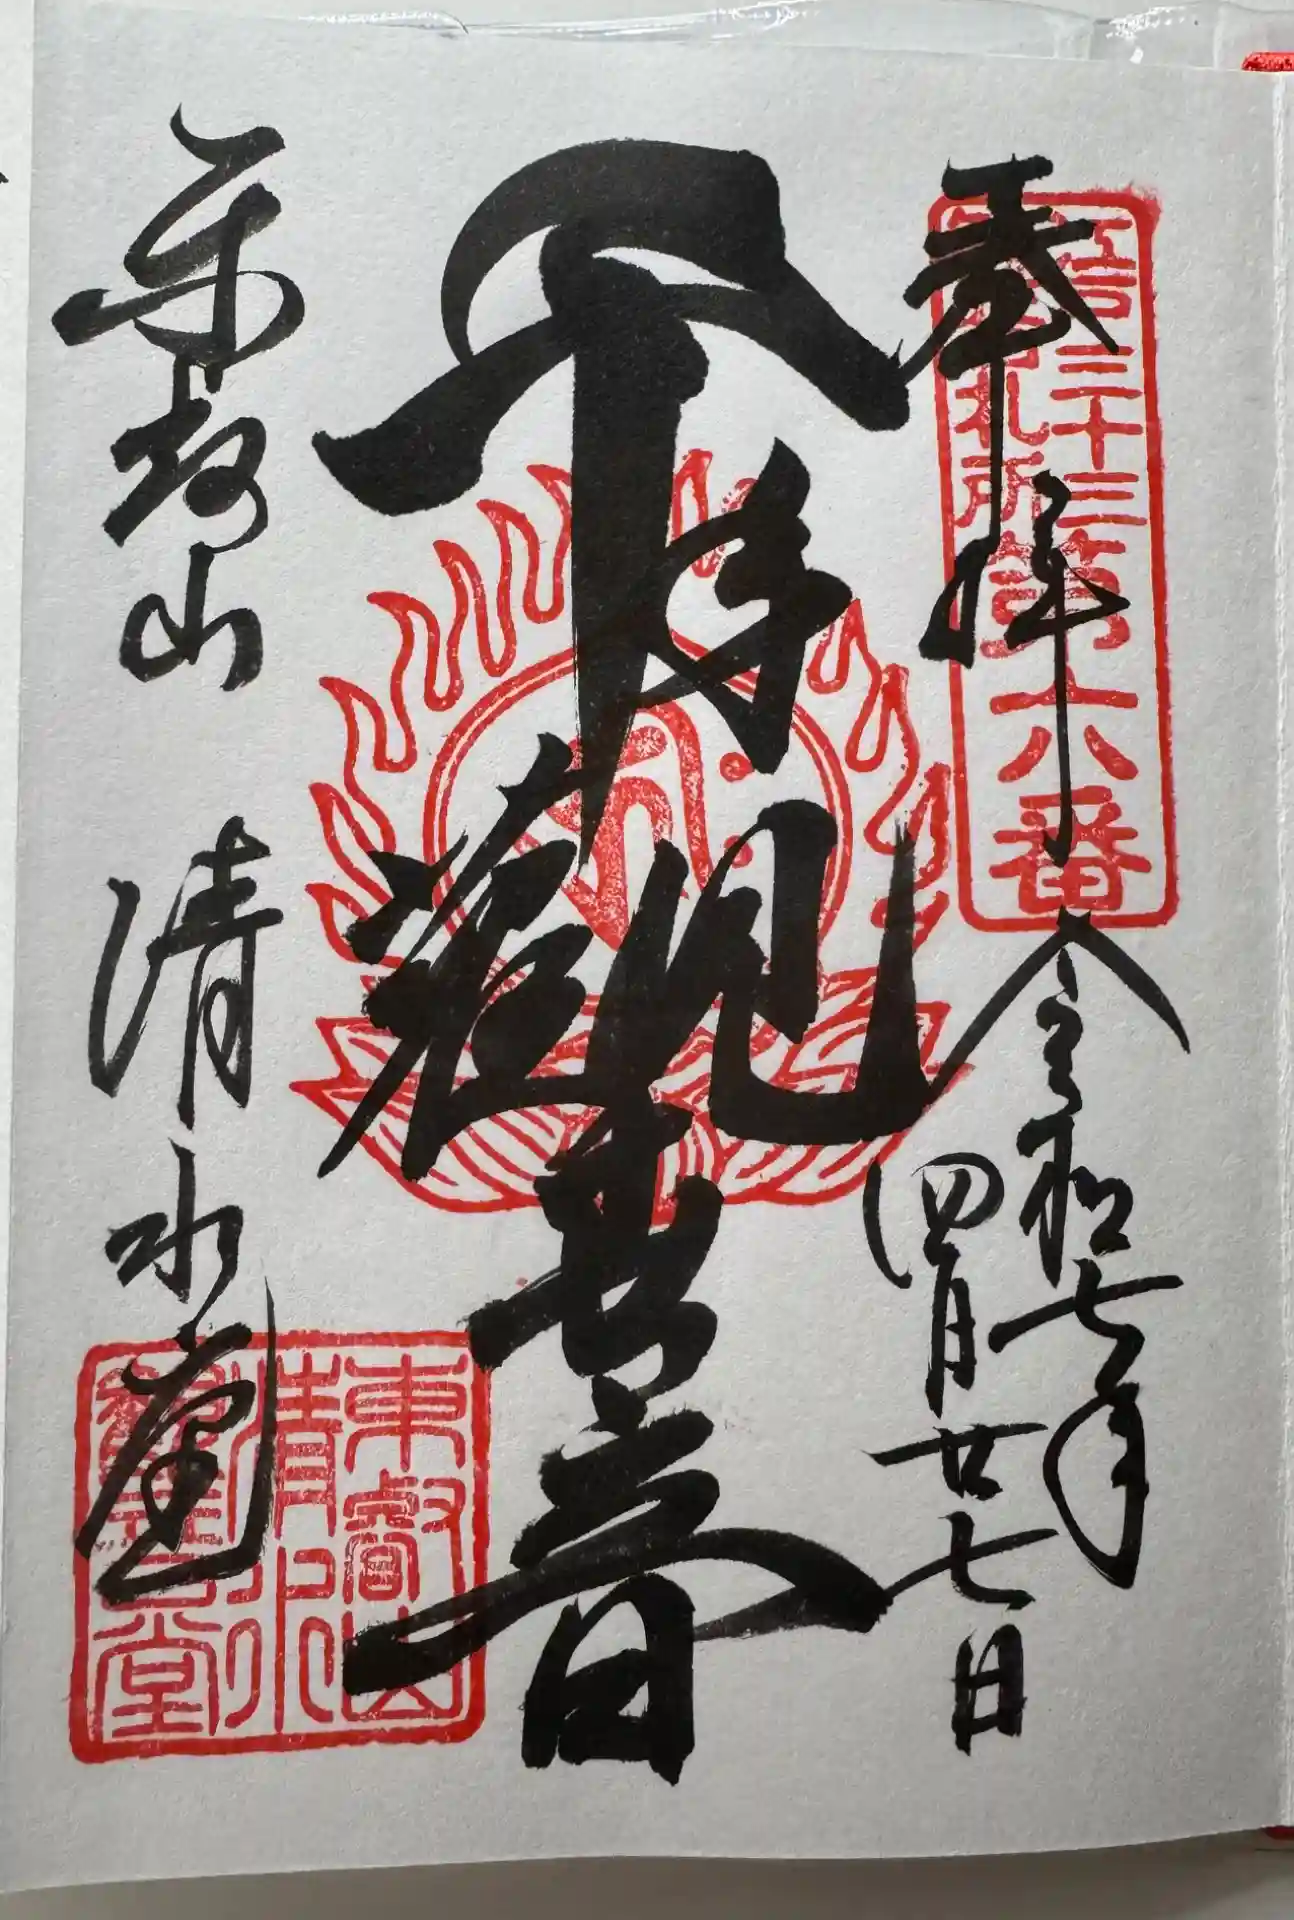 奉拝
令和七年
四月廿七日
千手觀世音
東叡山 清水堂
江戸三十三
札所
第六番
東叡山
清水
觀音堂